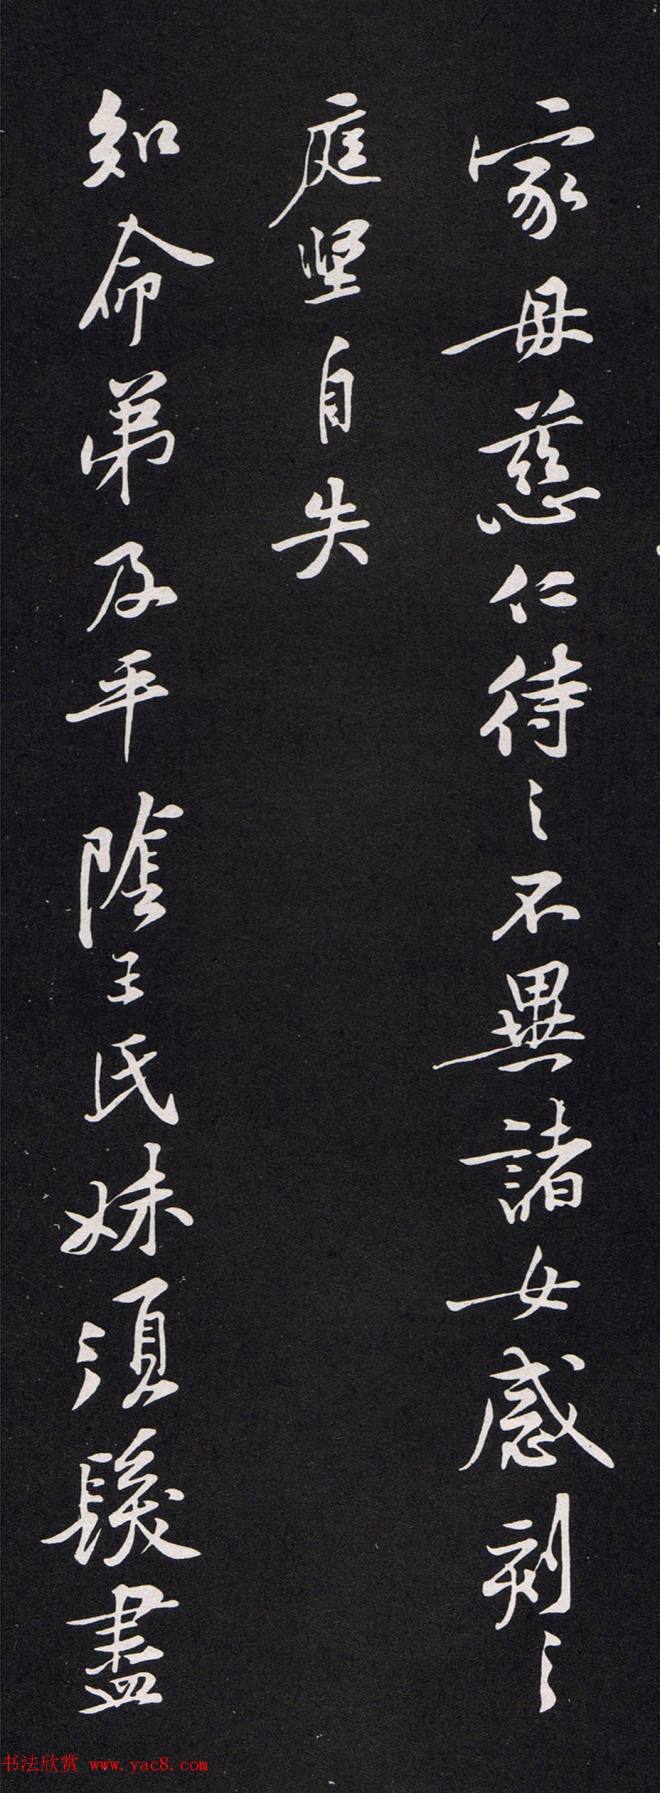 家母慈仁待之不異諸女感刻之
庭堅自失
知命弟及平陰王氏妹須髮盡
书法欣赏 www.yac8.com